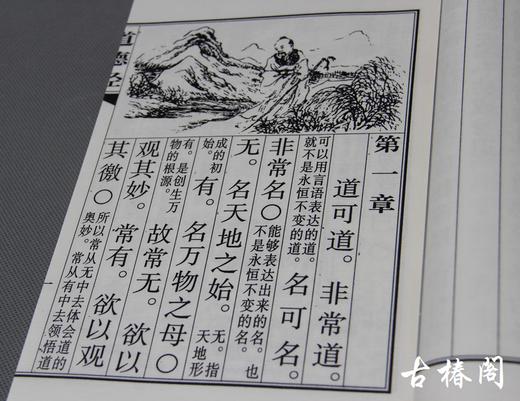 第一章
道可道。非常道。
可以用言语表达的道。
就不是永恒不变的道。
名可名。
非常名〇
能够表达出来的名。也
不是永恒不变的名。
无。名天地之始。
无。指
天地形
成的初
始。
有。名万物之母〇
有。是创生万
物的根源。
故常无。欲以
观其妙。常有。欲以观
其徼〇
所以常从无中去体会道的
奥妙。常从有中去领悟道
道德经
一
古椿阁